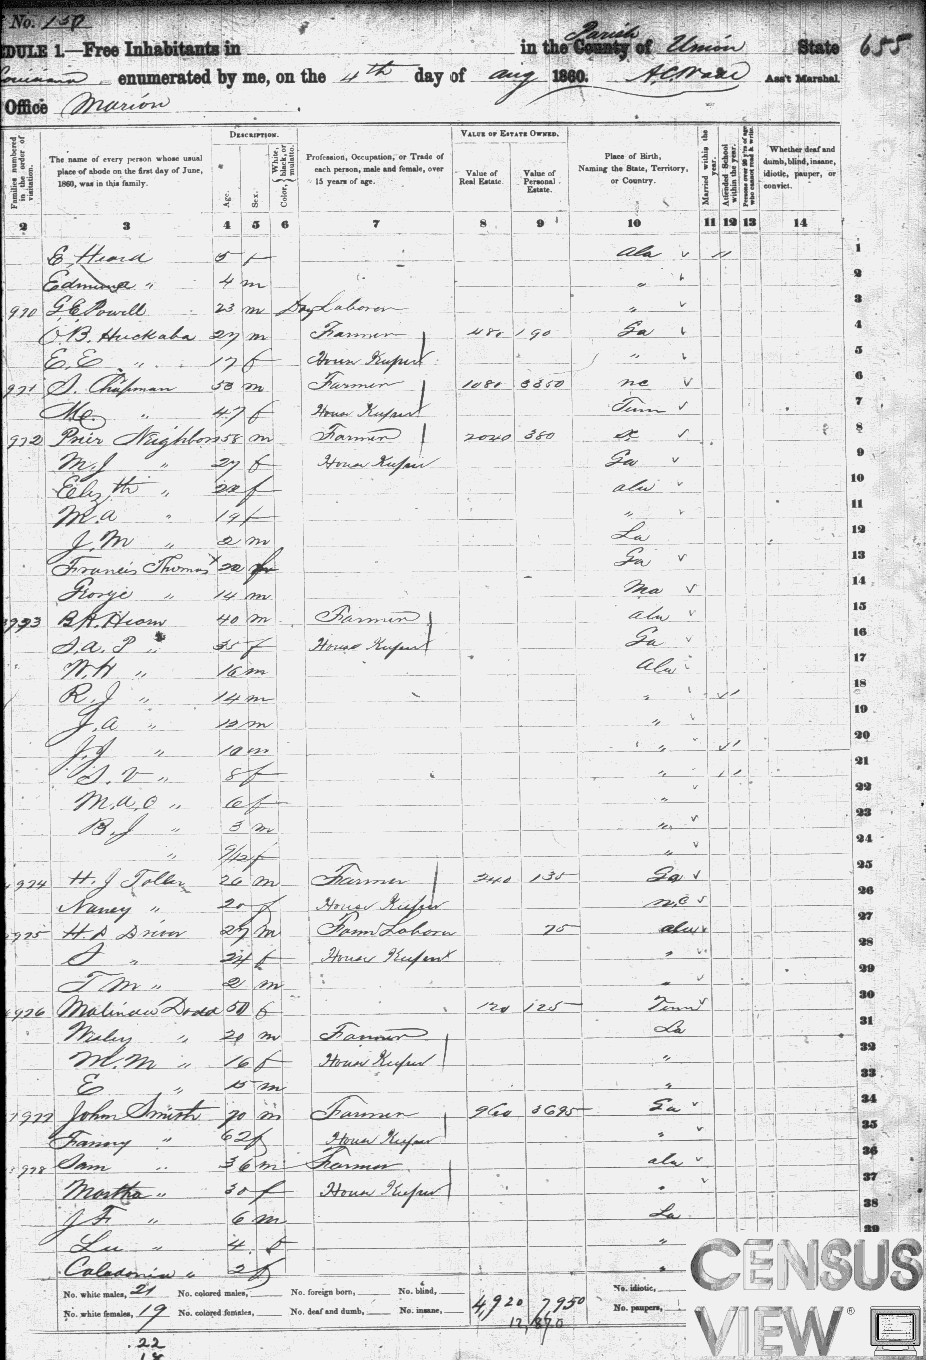 No. 150
DULE 1.—Free Inhabitants in in the County Parish of Union State 655
enumerated by me, on the 4th day of Aug 1860. Ass't Marshal.
Office Marion
Families numbered in the order of visitation. The name of every person whose usual place of abode on the first day of June, 1860, was in this family. DESCRIPTION. Age. Sex. Color, White, black, or mulatto. Profession, Occupation, or Trade of each person, male and female, over 15 years of age. VALUE OF ESTATE OWNED. Value of Real Estate. Value of Personal Estate. Place of Birth, Naming the State, Territory, or Country. Married within the year. Attended School within the year. Persons over 20 y'rs of age who cannot read & write. Whether deaf and dumb, blind, insane, idiotic, pauper, or convict.
2 3 4 5 6 7 8 9 10 11 12 13 14
E. Heard 5 f Ala 1
Edmund " 4 m " 2
920 G. E. Powell 23 m Day Laborer " 3
O. B. Huckaba 27 m Farmer 480 190 Ga 4
E. E. " 17 f House Keeper " 5
921 S. Chapman 53 m Farmer 1080 3350 NC 6
" 47 f House Keeper Tenn 7
922 Prier Neighbors 58 m Farmer 2040 380 8
M. J " 27 f House Keeper Ga 9
Elizth " 22 f Ala 10
M. A " 19 f " 11
J. M " 2 m La 12
Francis Thomas 22 Ga 13
George " 14 m 14
923 40 m Farmer Ala 15
S. A. P " 35 f House Keeper Ga 16
W. H " 16 m Ala 17
R. J " 14 m " 18
J. A " 12 m " 19
J. J " 10 m " 20
S. V " 8 f " 21
M. A. C " 6 f " 22
B. J " 3 m " 23
" 9/12 f " 24
924 H. J 26 m Farmer 240 135 Ga 25
Nancy " 20 f House Keeper NC 26
925 H. D Driver 27 m Farm Laborer 75 Ala 27
S " 24 f House Keeper " 28
T M " 2 m " 29
926 Malinda Dodd 50 f 120 125 Tenn 30
Wesley " 20 m Farmer La 31
M. M " 16 f House Keeper " 32
E " 15 m " 33
927 John Smith 70 m Farmer 960 3695 Ga 34
Fanny " 62 f House Keeper " 35
928 Sam " 36 m Farmer Ala 36
Martha " 30 f House Keeper " 37
J F " 6 m La 38
Lu " 4 f " 39
Caledonia " 2 f "
No. white males, 21 No. colored males, No. foreign born, No. blind, No. idiotic,
No. white females, 19 No. colored females, No. deaf and dumb, No. insane, 4,920 7,950 No. paupers,
12,870
22
18
CENSUS
VIEW®